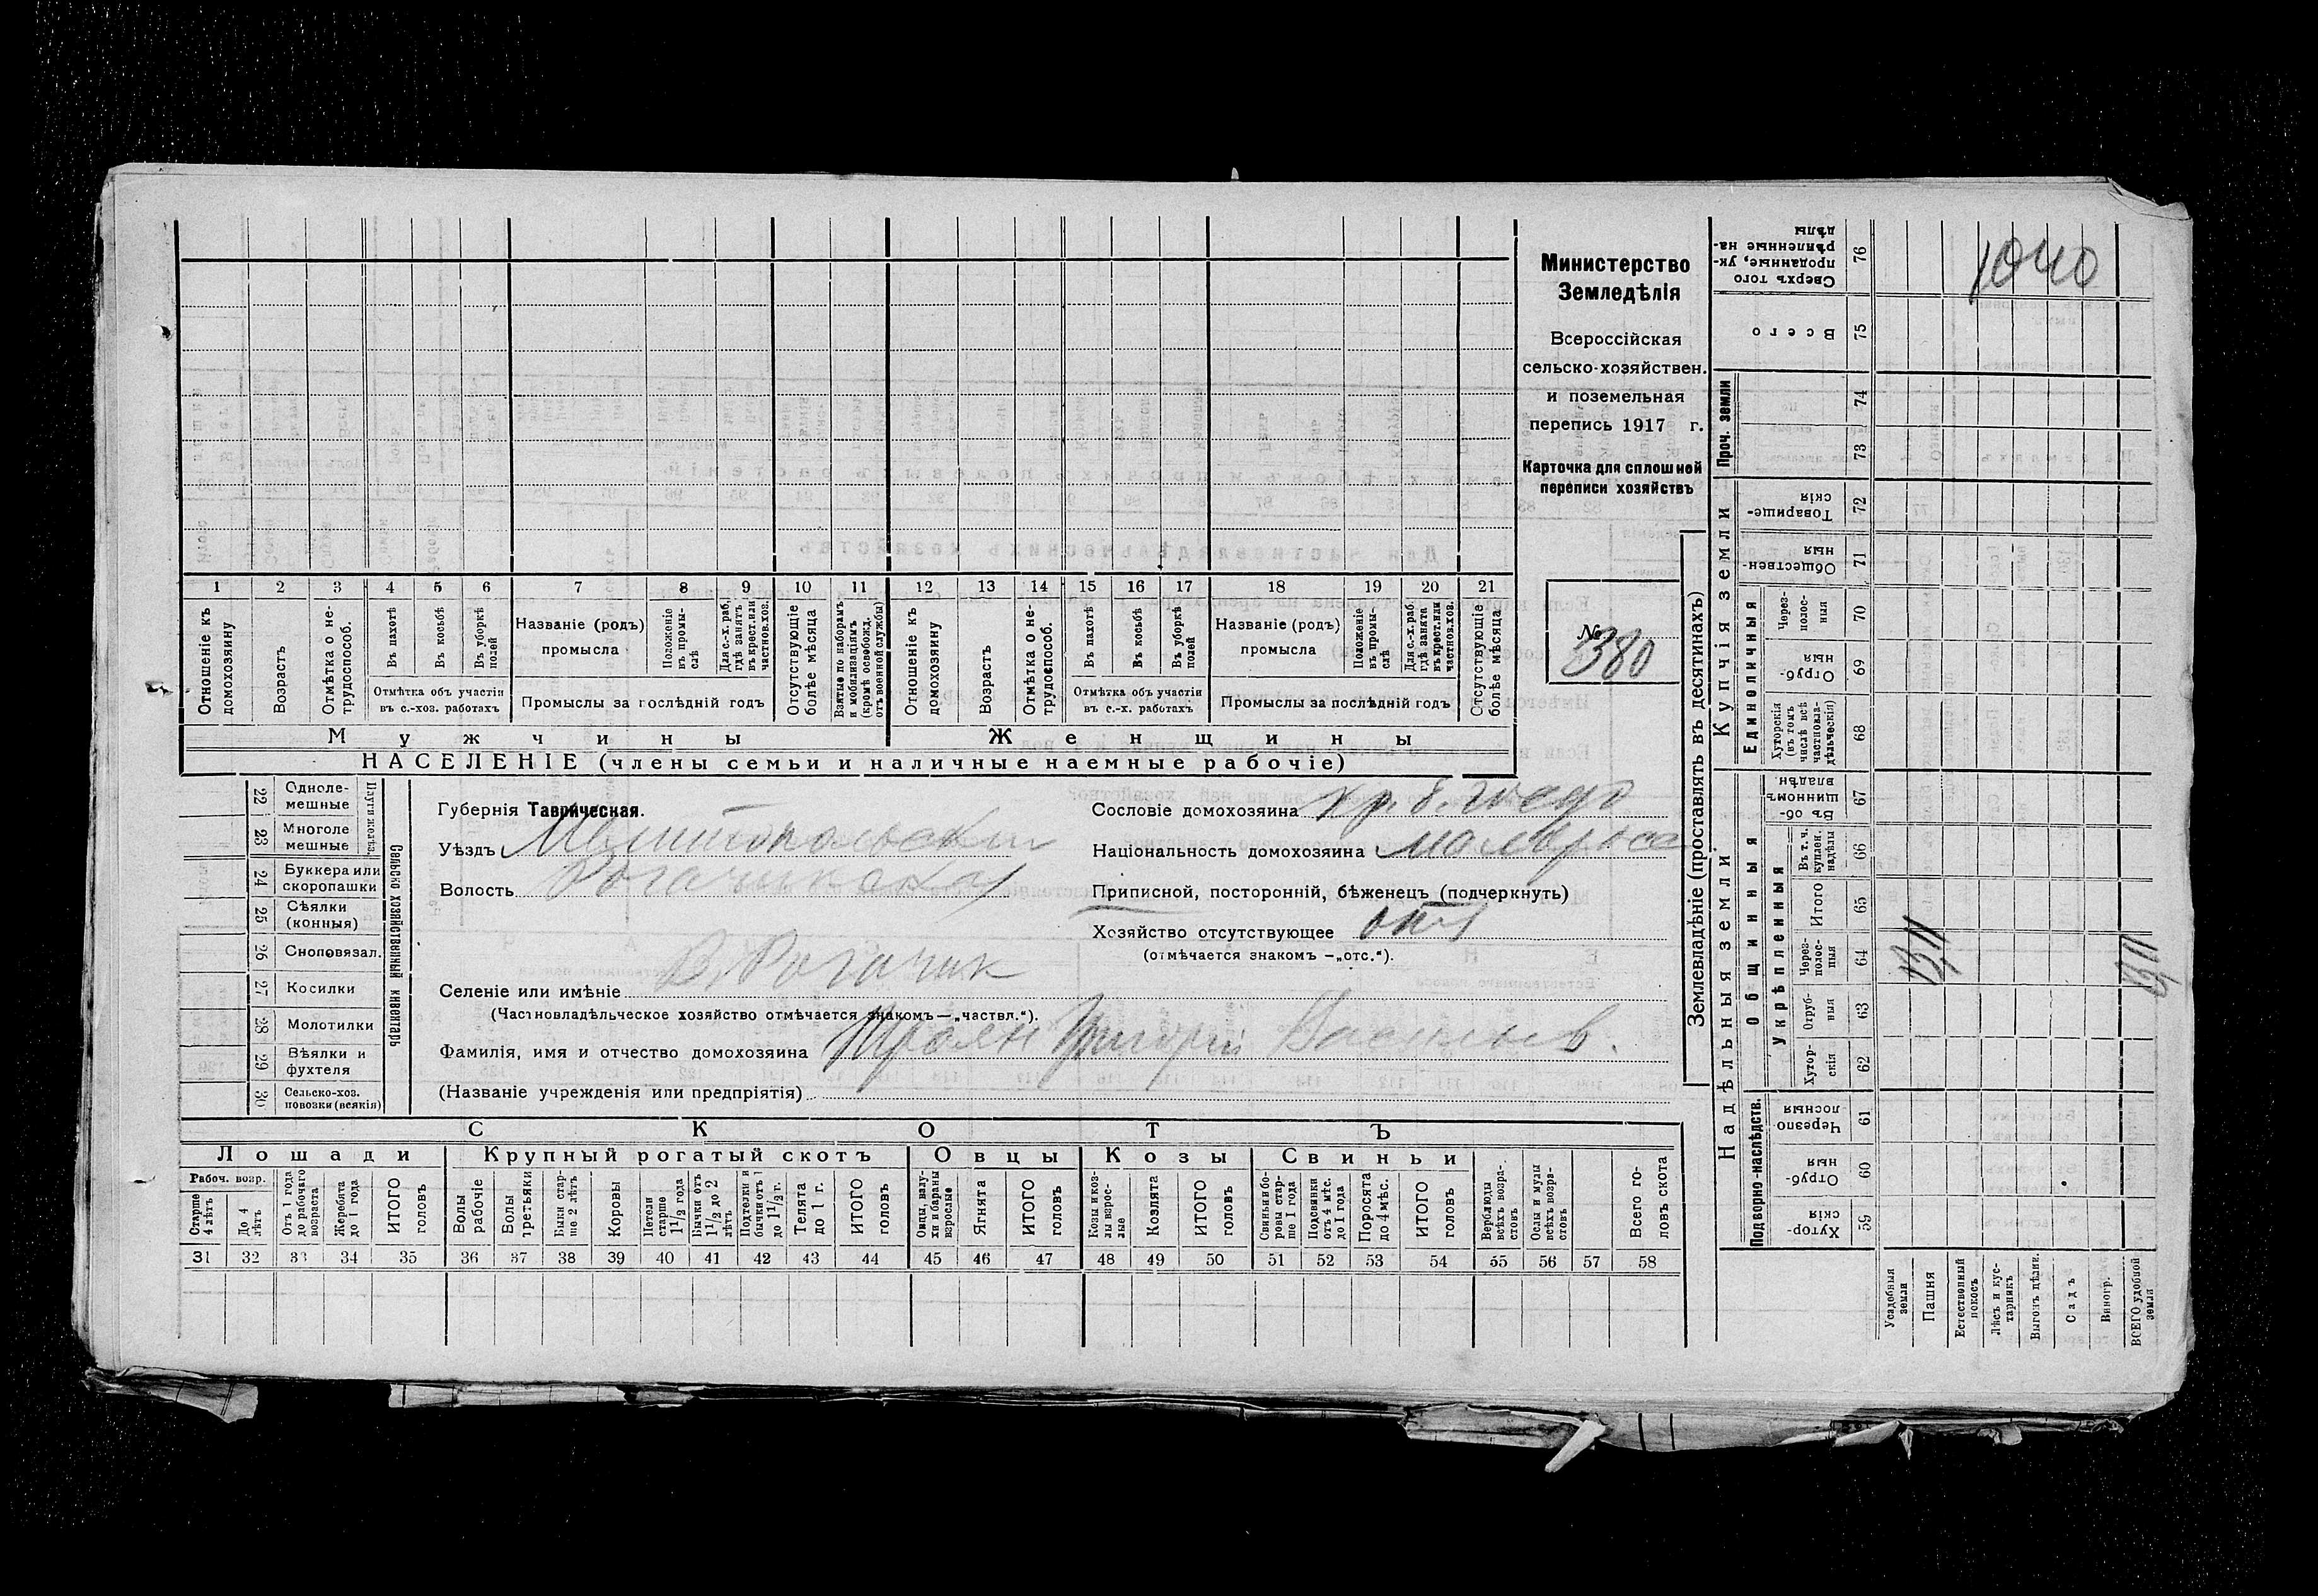 1040
Министерство
Земледѣлія
Всероссійская
сельско-хозяйствен.
и поземельная
перепись 1917 г.
Карточка для сплошной
переписи хозяйствъ
№
380
1 2 3 4 5 6 7 8 9 10 11 12 13 14 15 16 17 18 19 20 21
Отношеніе къ домохозяину
Возрастъ
Отмѣтка о не-трудоспособ.
Въ пахотѣ
Въ косьбѣ
Въ уборкѣ полей
Отмѣтка объ участіи
въ с.-хоз. работахъ
Названіе (родъ)
промысла
Положеніе въ промы-слѣ
Для с.-х. раб. гдѣ занятъ въ крест. или частнов. хоз.
Промыслы за послѣдній годъ
Отсутствующіе болѣе мѣсяца
Взятые по наборамъ и мобилизаціямъ (кромѣ освобожд. отъ военной службы)
Отношеніе къ домохозяину
Возрастъ
Отмѣтка о не-трудоспособ.
Въ пахотѣ
Въ косьбѣ
Въ уборкѣ полей
Отмѣтка объ участіи
въ с.-х. работахъ
Названіе (родъ)
промысла
Положеніе въ промы-слѣ
Для с.-х. раб. гдѣ занята въ крест. или частнов. хоз.
Промыслы за послѣдній годъ
Отсутствующіе болѣе мѣсяца
Мужчины Женщины
НАСЕЛЕНІЕ (члены семьи и наличные наемные рабочіе)
22 Одноле-мешные
23 Многоле мешные
Плуги желѣз.
24 Буккера или скоропашки
25 Сѣялки (конныя)
26 Сноповязал.
27 Косилки
28 Молотилки
29 Вѣялки и фухтеля
30 Сельско-хоз. повозки (всякія)
Сельско хозяйственный инвентарь
Губернія Таврическая.
Уѣздъ Мелитопольский
Волость Рогачикская
Селеніе или имѣніе В. Рогачик
(Частновладѣльческое хозяйство отмѣчается знакомъ—„частвл.“).
Фамилія, имя и отчество домохозяина Троян Григорій Васильев.
(Названіе учрежденія или предпріятія)
Сословіе домохозяина кр. б. госуд
Національность домохозяина малорос
Приписной, посторонній, бѣженецъ (подчеркнуть)
Хозяйство отсутствующее отс
(отмѣчается знакомъ —„отс.“).
СКОТЪ
Лошади Крупный рогатый скотъ Овцы Козы Свиньи
Рабоч. возр.
Старше 4 лѣтъ
До 4 лѣтъ
Отъ 1 года до рабочаго возраста
Жеребята до 1 года
ИТОГО головъ
Волы рабочіе
Волы третьяки
Быки стар-ше 2 лѣтъ
Коровы
Нетели старше 1 1/2 года
Бычки отъ 1 1/2 до 2 лѣтъ
Подтелки и бычки отъ 1 до 1 1/2 г.
Телята до 1 г.
ИТОГО головъ
Овцы, валу-хи и бараны взрослые
Ягнята
ИТОГО головъ
Козы и коз-лы взрос-лые
Козлята
ИТОГО головъ
Свиньи и бо-ровы стар-ше 1 года
Подсвинки отъ 4 мѣс. до 1 года
Поросята до 4 мѣс.
ИТОГО головъ
Верблюды всѣхъ возра-стовъ
Ослы и мулы всѣхъ возра-стовъ
Всего го-ловъ скота
31 32 33 34 35 36 37 38 39 40 41 42 43 44 45 46 47 48 49 50 51 52 53 54 55 56 57 58
Землевладѣніе (проставлять въ десятинахъ)
Надѣльныя земли
Купчія земли
Проч. земли
Подворно-наслѣдств.
Общинныя
Укрѣпленныя
Единоличныя
Сверхъ того проданные, ук-рѣпленные на-дѣлы 76
Всего 75
74
73
Товарище-скія 72
Обществен-ныя 71
Через-полос-ныя 70
Отруб-ныя 69
Хуторскія (въ томъ числѣ всѣ частновла-дѣльческія) 68
Въ об-щинномъ владѣн 67
Въ т. ч. куплен. надѣлы 66
Итого 65
Через-полос-ныя 64
Отруб-ныя 63
Хутор-скія 62
Черезпо лосныя 61
Отруб-ныя 60
Хутор-скія 59
Усадебная земля
Пашня
Естественный покосъ
Лѣсъ и кус-тарникъ
Выгонъ дѣлин.
Садъ
Виногр.
ВСЕГО удобной земли